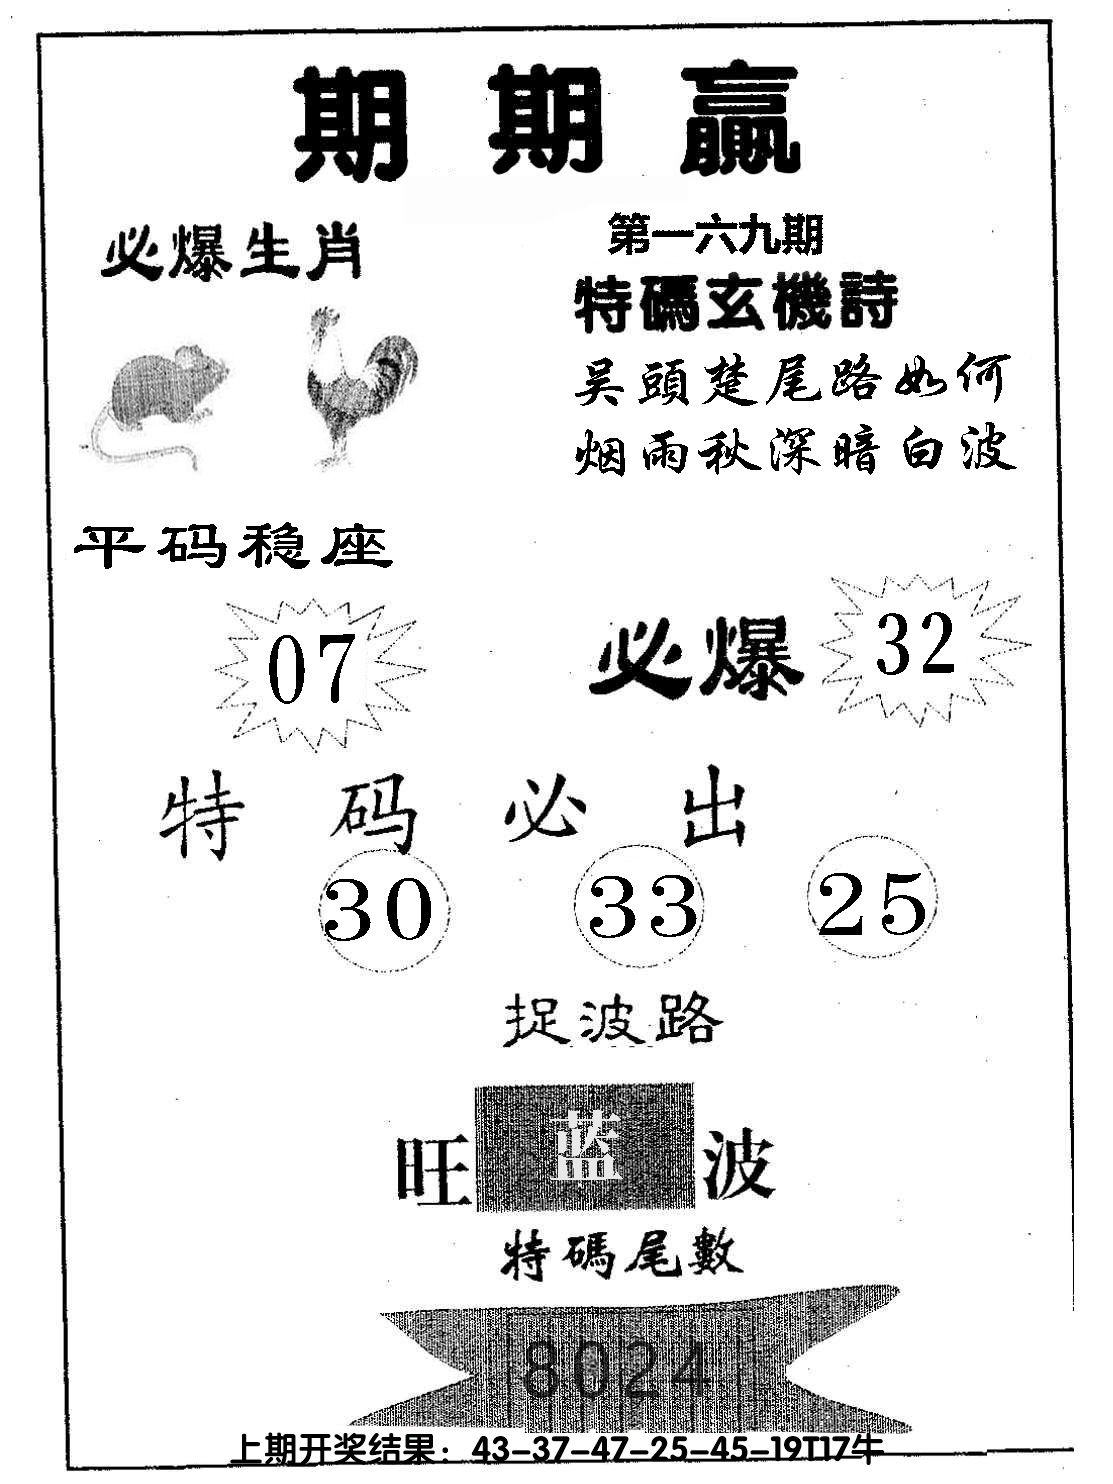 期期赢
必爆生肖
第一六九期
特碼玄機詩
吴頭楚尾路如何
烟雨秋深暗白波
平码稳座
07
必爆
32
特码必出
30 33 25
捉波路
旺蓝波
特碼尾數
8024
上期开奖结果：43-37-47-25-45-19T17牛